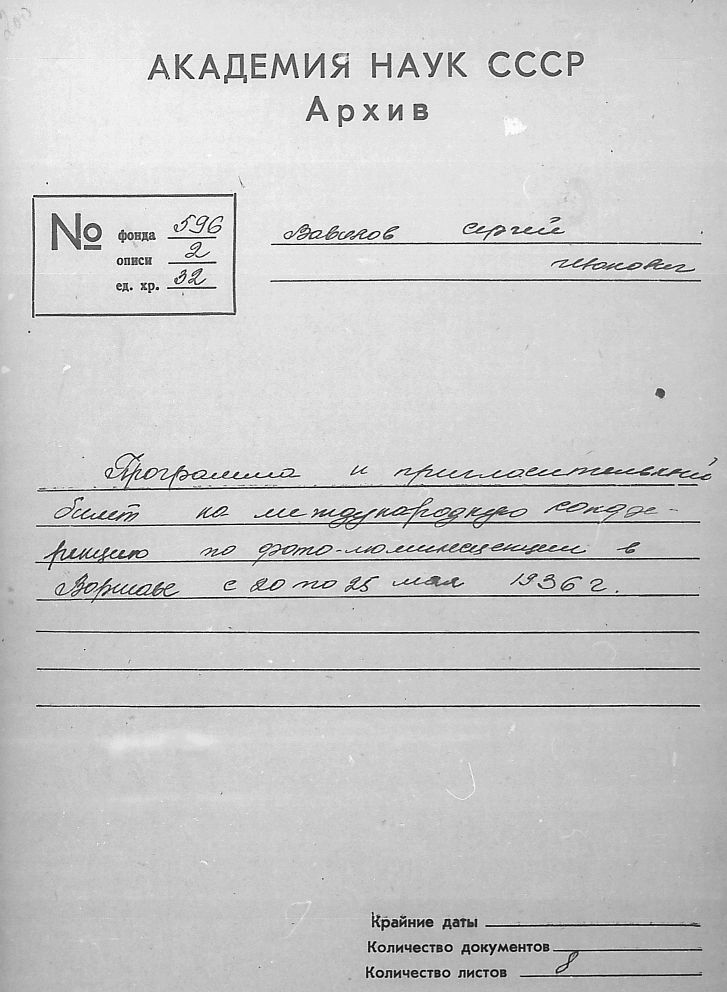 АКАДЕМИЯ НАУК СССР
Архив
№
фонда 596
описи 2
ед. хр. 32
Вавилов Сергей
Иванович
Программа и пригласительный
билет на международную конфе-
ренцию по фото-люминесценции в
Варшаве с 20 по 25 мая 1936 г.
Крайние даты
Количество документов
Количество листов 8